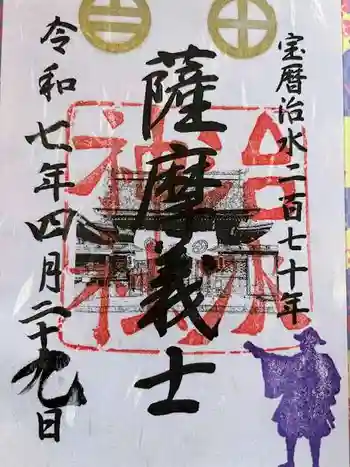 宝暦治水二百七十年
薩摩義士
令和七年四月二十九日
治水神社